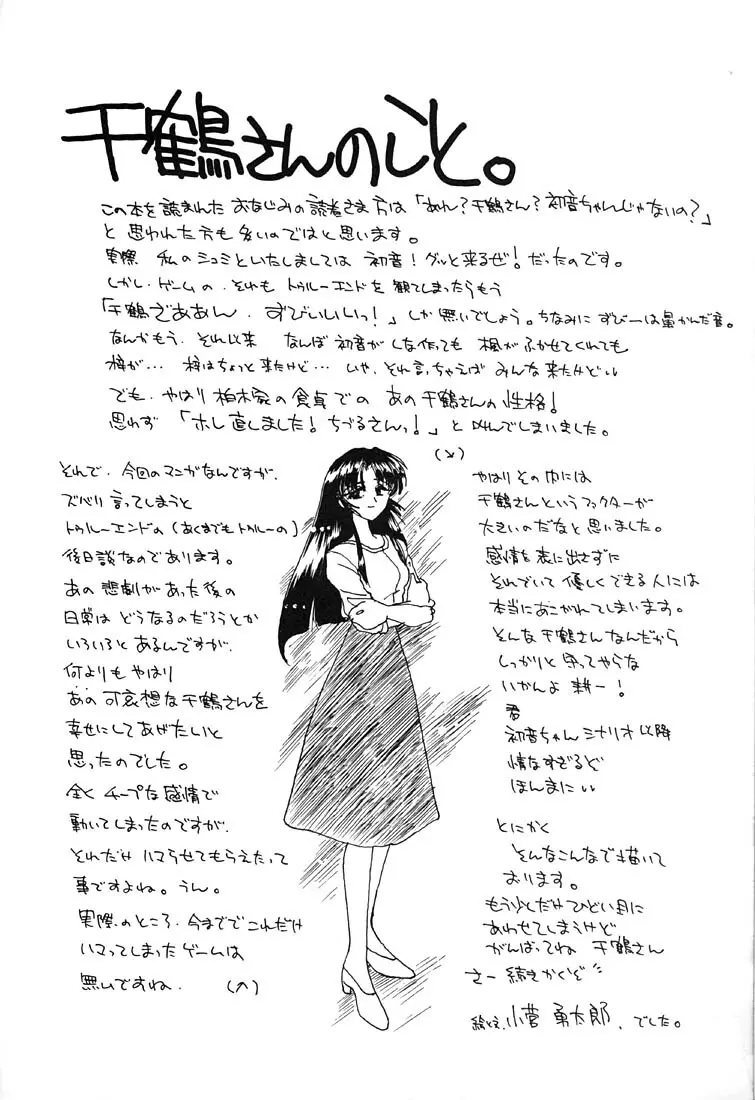 千鶴さんのこと。
この本を読まれた おなじみの読者さま方は「あれ?千鶴さん?初音ちゃんじゃないの?」
と 思われた方も多いのではと思います。
実際 私のシュミといたしましては 初音!グッと来るぜ!だったのです。
しかし、ゲームの、それも トゥルーエンドを観てしまったらもう
「千鶴ざああん、ずびいいいっ!」しか無いでしょう。ちなみに ずびーは鼻かんだ音。
なんかもう、それ以来 なんぼ 初音がしな作っても 楓がふかせてくれても
梓が… 梓はちょっと来たけど… いや、それ言っちゃえば みんな来たけどい
でも、やはり 柏木家の食卓での あの千鶴さんの性格!
思わず 「ホレ直しました!ちづるさんっ!」と叫んでしまいました。
それで、今回のマンガなんですが、
ズバリ言ってしまうと
トゥルーエンドの(あくまでもトゥルーの)
後日談なのであります。
あの 悲劇があった後の
日常は どうなるのだろうとか
いろいろと あるんですが、
何よりも やはり
あの 可哀想な千鶴さんを
幸せにしてあげたいと
思ったのでした。
全く チープな感情で
動いてしまったのですが、
それだけ ハマらせてもらえたって
事ですよね。うん。
実際のところ、今まででこれだけ
ハマってしまったゲームは
無いですね。
やはり その中には
千鶴さんというファクターが
大きいのだなと思いました。
感情を表に出さずに
それでいて 優しくできる人には
本当にあこがれてしまいます。
そんな千鶴さんなんだから
しっかりと 守ってやらな
いかんよ 耕一!
君
初音ちゃんシナリオ以降
情なすぎるど
ほんまにい
とにかく
そんなこんなで描いて
おります。
もう少しだけひどい目に
あわせてしまうけど
がんばってね 千鶴さん
さー続きかくぞ
絵と文、小菅 勇太郎、でした。